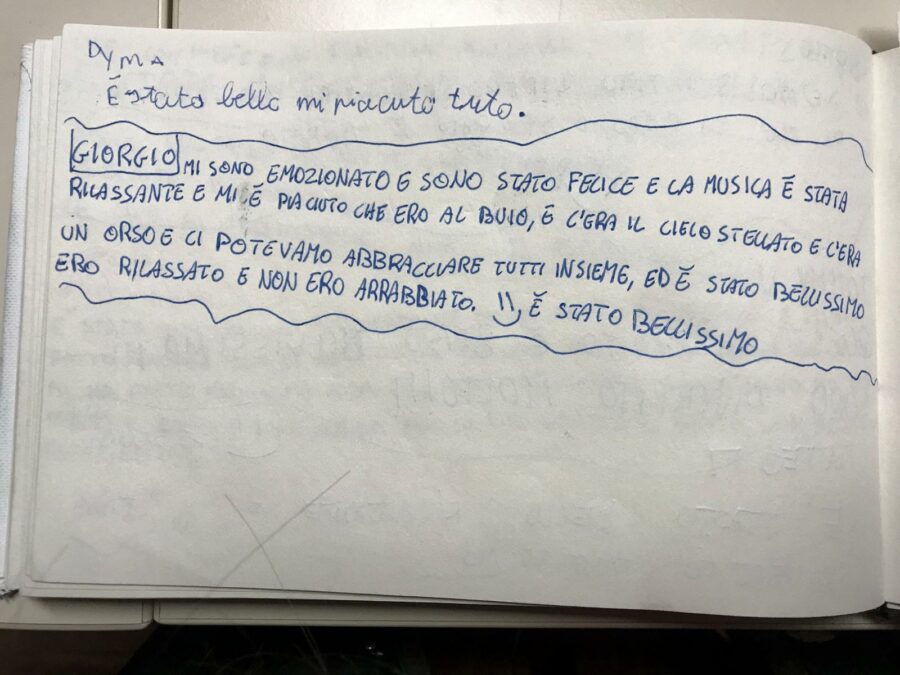 DYMA
È stato bello mi piacuto tuto.
GIORGIO MI SONO EMOZIONATO E SONO STATO FELICE E LA MUSICA È STATA
RILASSANTE E MI È PIACIUTO CHE ERO AL BUIO, E C'ERA IL CIELO STELLATO E C'ERA
UN ORSO E CI POTEVAMO ABBRACCIARE TUTTI INSIEME, ED È STATO BELLISSIMO
ERO RILASSATO E NON ERO ARRABBIATO. È STATO BELLISSIMO